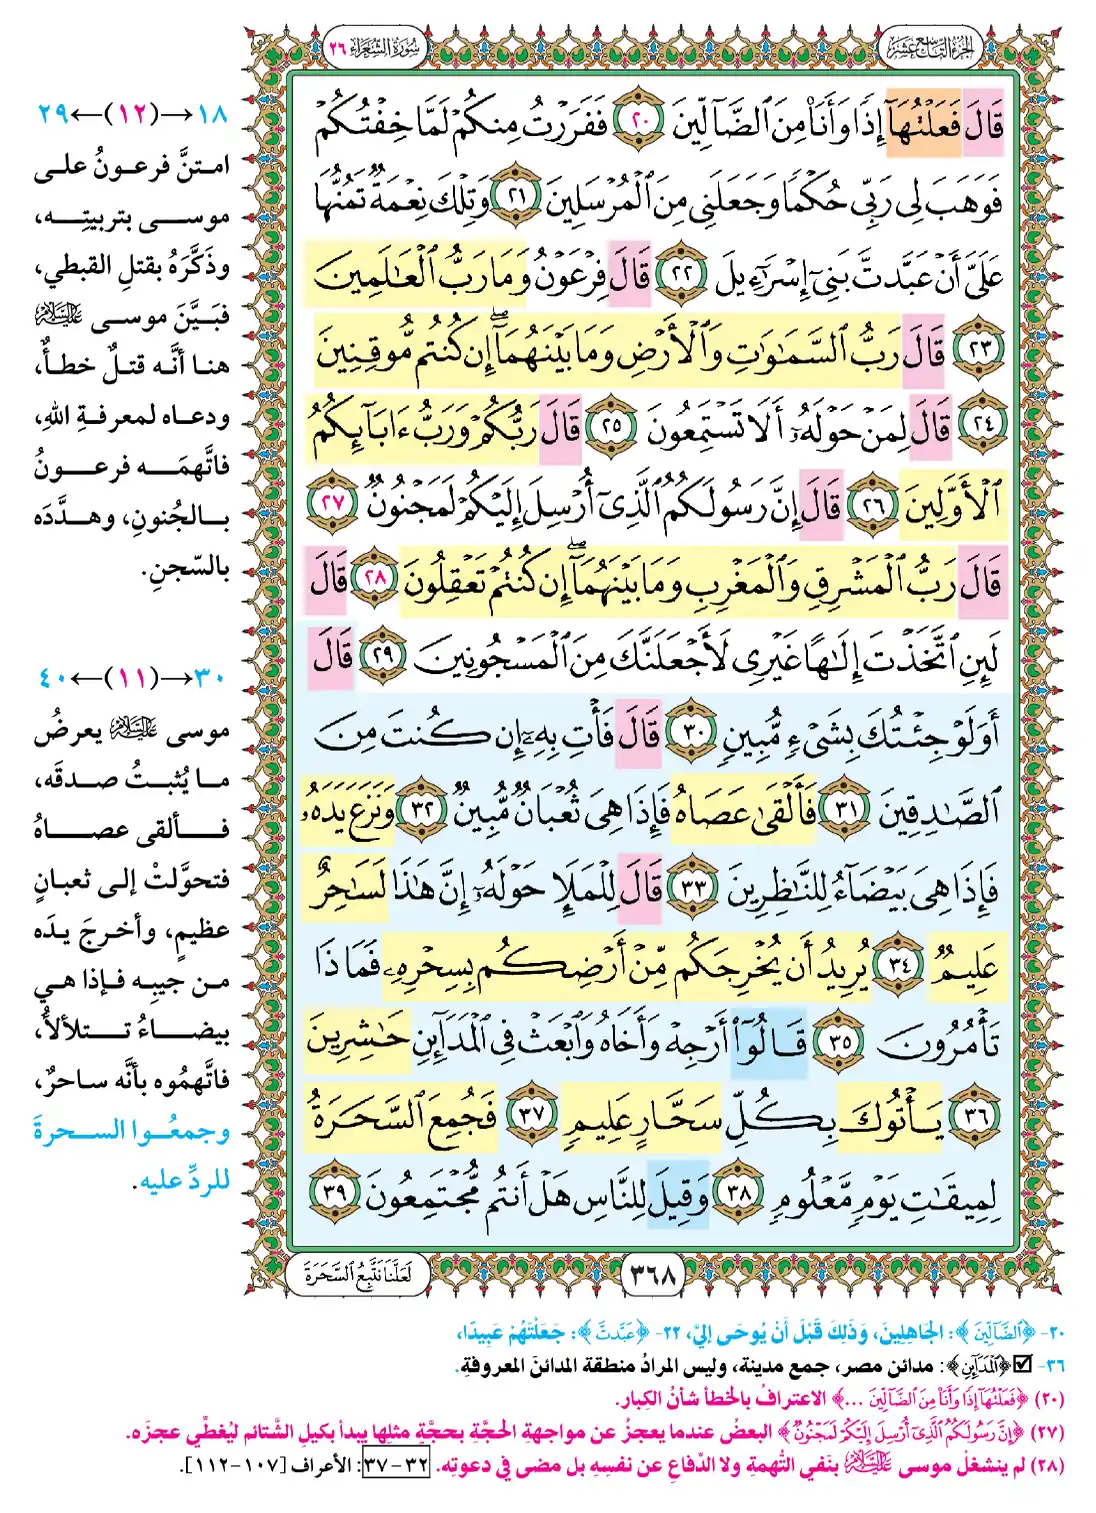 الجزء التاسع عشر
سورة الشعراء ٢٦
قَالَ فَعَلْتُهَآ إِذًا وَأَنَا۠ مِنَ ٱلضَّآلِّينَ ٢٠ فَفَرَرْتُ مِنكُمْ لَمَّا خِفْتُكُمْ
فَوَهَبَ لِى رَبِّى حُكْمًا وَجَعَلَنِى مِنَ ٱلْمُرْسَلِينَ ٢١ وَتِلْكَ نِعْمَةٌ تَمُنُّهَا
عَلَىَّ أَنْ عَبَّدتَّ بَنِىٓ إِسْرَٰٓءِيلَ ٢٢ قَالَ فِرْعَوْنُ وَمَا رَبُّ ٱلْعَٰلَمِينَ
٢٣ قَالَ رَبُّ ٱلسَّمَٰوَٰتِ وَٱلْأَرْضِ وَمَا بَيْنَهُمَآ ۖ إِن كُنتُم مُّوقِنِينَ
٢٤ قَالَ لِمَنْ حَوْلَهُۥٓ أَلَا تَسْتَمِعُونَ ٢٥ قَالَ رَبُّكُمْ وَرَبُّ ءَابَآئِكُمُ
ٱلْأَوَّلِينَ ٢٦ قَالَ إِنَّ رَسُولَكُمُ ٱلَّذِىٓ أُرْسِلَ إِلَيْكُمْ لَمَجْنُونٌ ٢٧
قَالَ رَبُّ ٱلْمَشْرِقِ وَٱلْمَغْرِبِ وَمَا بَيْنَهُمَآ ۖ إِن كُنتُمْ تَعْقِلُونَ ٢٨ قَالَ
لَئِنِ ٱتَّخَذْتَ إِلَٰهًا غَيْرِى لَأَجْعَلَنَّكَ مِنَ ٱلْمَسْجُونِينَ ٢٩ قَالَ
أَوَلَوْ جِئْتُكَ بِشَىْءٍ مُّبِينٍ ٣٠ قَالَ فَأْتِ بِهِۦٓ إِن كُنتَ مِنَ
ٱلصَّٰدِقِينَ ٣١ فَأَلْقَىٰ عَصَاهُ فَإِذَا هِىَ ثُعْبَانٌ مُّبِينٌ ٣٢ وَنَزَعَ يَدَهُۥ
فَإِذَا هِىَ بَيْضَآءُ لِلنَّٰظِرِينَ ٣٣ قَالَ لِلْمَلَإِ حَوْلَهُۥٓ إِنَّ هَٰذَا لَسَٰحِرٌ
عَلِيمٌ ٣٤ يُرِيدُ أَن يُخْرِجَكُم مِّنْ أَرْضِكُم بِسِحْرِهِۦ فَمَاذَا
تَأْمُرُونَ ٣٥ قَالُوٓا۟ أَرْجِهْ وَأَخَاهُ وَٱبْعَثْ فِى ٱلْمَدَآئِنِ حَٰشِرِينَ
٣٦ يَأْتُوكَ بِكُلِّ سَحَّارٍ عَلِيمٍ ٣٧ فَجُمِعَ ٱلسَّحَرَةُ
لِمِيقَٰتِ يَوْمٍ مَّعْلُومٍ ٣٨ وَقِيلَ لِلنَّاسِ هَلْ أَنتُم مُّجْتَمِعُونَ ٣٩
٣٦٨
لَعَلَّنَا نَتَّبِعُ ٱلسَّحَرَةَ
١٨→(١٢)←٢٩
امتنَّ فرعونُ على
موسى بتربيتِه،
وذَكَّرَهُ بقتلِ القبطي،
فبَيَّنَ موسى عليه السلام
هنا أنَّه قتلٌ خطأٌ،
ودعاه لمعرفةِ اللهِ،
فاتَّهمَه فرعونُ
بالجُنونِ، وهدَّدَه
بالسّجنِ.
٣٠→(١١)←٤٠
موسى عليه السلام يعرضُ
ما يُثبتُ صدقَه،
فألقى عصاهُ
فتحوَّلتْ إلى ثعبانٍ
عظيمٍ، وأخرجَ يدَه
من جيبِه فإذا هي
بيضاءُ تتلألأُ،
فاتَّهمُوه بأنَّه ساحرٌ،
وجمعُوا السحرةَ
للردِّ عليه.
٢٠- ﴿ٱلضَّآلِّينَ﴾: الجَاهِلِينَ، وَذَلِكَ قَبْلَ أَنْ يُوحَى إِلَيَّ، ٢٢- ﴿عَبَّدتَّ﴾: جَعَلْتَهُمْ عَبِيدًا،
٣٦- ☑ ﴿ٱلْمَدَآئِنِ﴾: مدائن مصر، جمع مدينة، وليس المرادُ منطقة المدائنَ المعروفةِ.
(٢٠) ﴿فَعَلْتُهَآ إِذًا وَأَنَا۠ مِنَ ٱلضَّآلِّينَ ...﴾ الاعترافُ بالخطأ شأنُ الكِبار.
(٢٧) ﴿إِنَّ رَسُولَكُمُ ٱلَّذِىٓ أُرْسِلَ إِلَيْكُمْ لَمَجْنُونٌ﴾ البعضُ عندما يعجزُ عن مواجهةِ الحجَّةِ بحجَّةٍ مثلِها يبدأ بكيلِ الشَّتائم ليُغطِّي عجزَه.
(٢٨) لم ينشغلْ موسى عليه السلام بنَفي التُّهمةِ ولا الدِّفاعِ عن نفسِهِ بل مضى في دعوتِه. ٣٢-٣٧: الأعراف [١٠٧-١١٢].